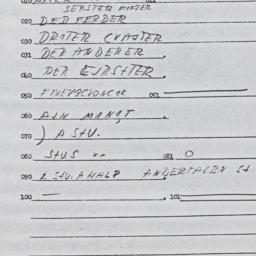 SEKSTER FIFTER
020 DER FERDER
030 DRITER CVAITER
031 DER ANDERER
040 DER ERSHTER
050 051
060 AIN MANAT
070 ) A STU.
080 STUS xx 081 O
090 2 STU. A HALP ANDERTALEN ST
100 — 101